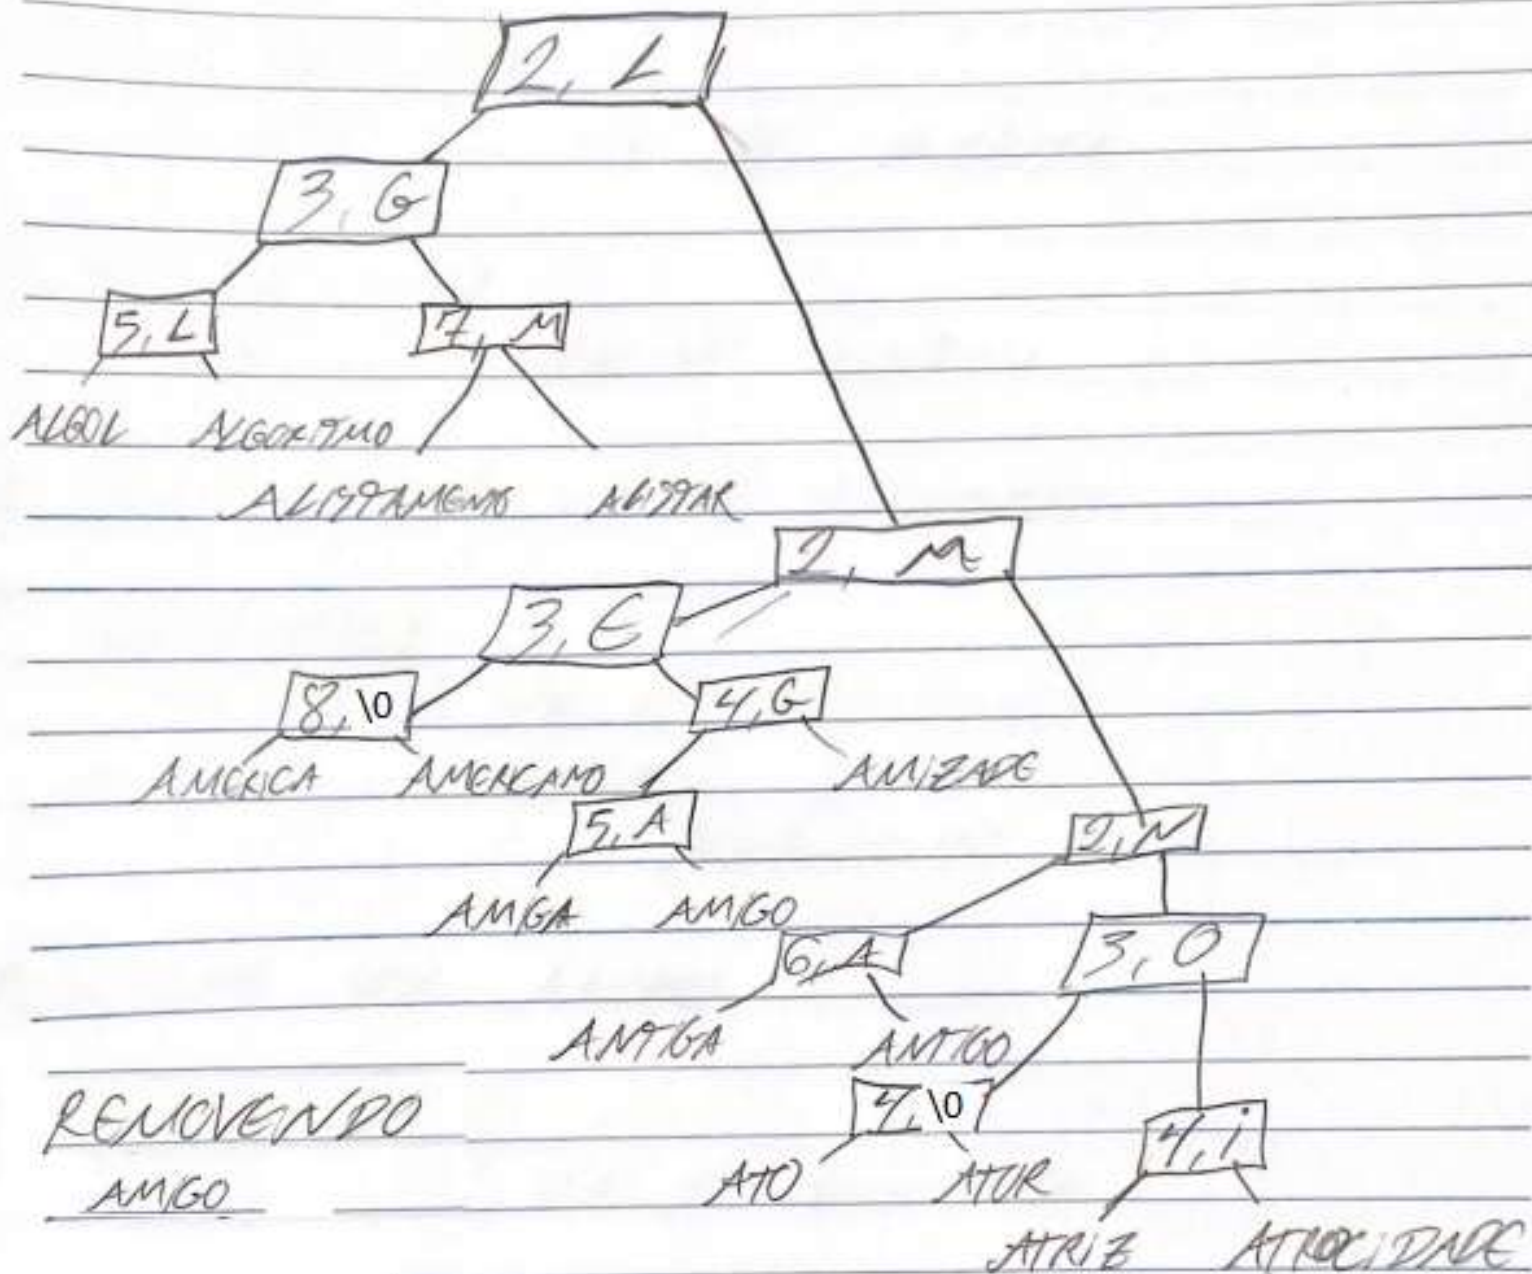 2, L
3, G
5, L
7, M
ALGOL ALGORITMO
ALISTAMENTO ALISTAR
2, M
3, E
8, \0
4, G
AMERICA AMERICANO AMIZADE
5, A
2, N
AMIGA AMIGO
6, A
3, O
ANTIGA ANTIGO
4, \0
REMOVENDO
4, i
AMIGO
ATO ATOR
ATRIZ ATROCIDADE